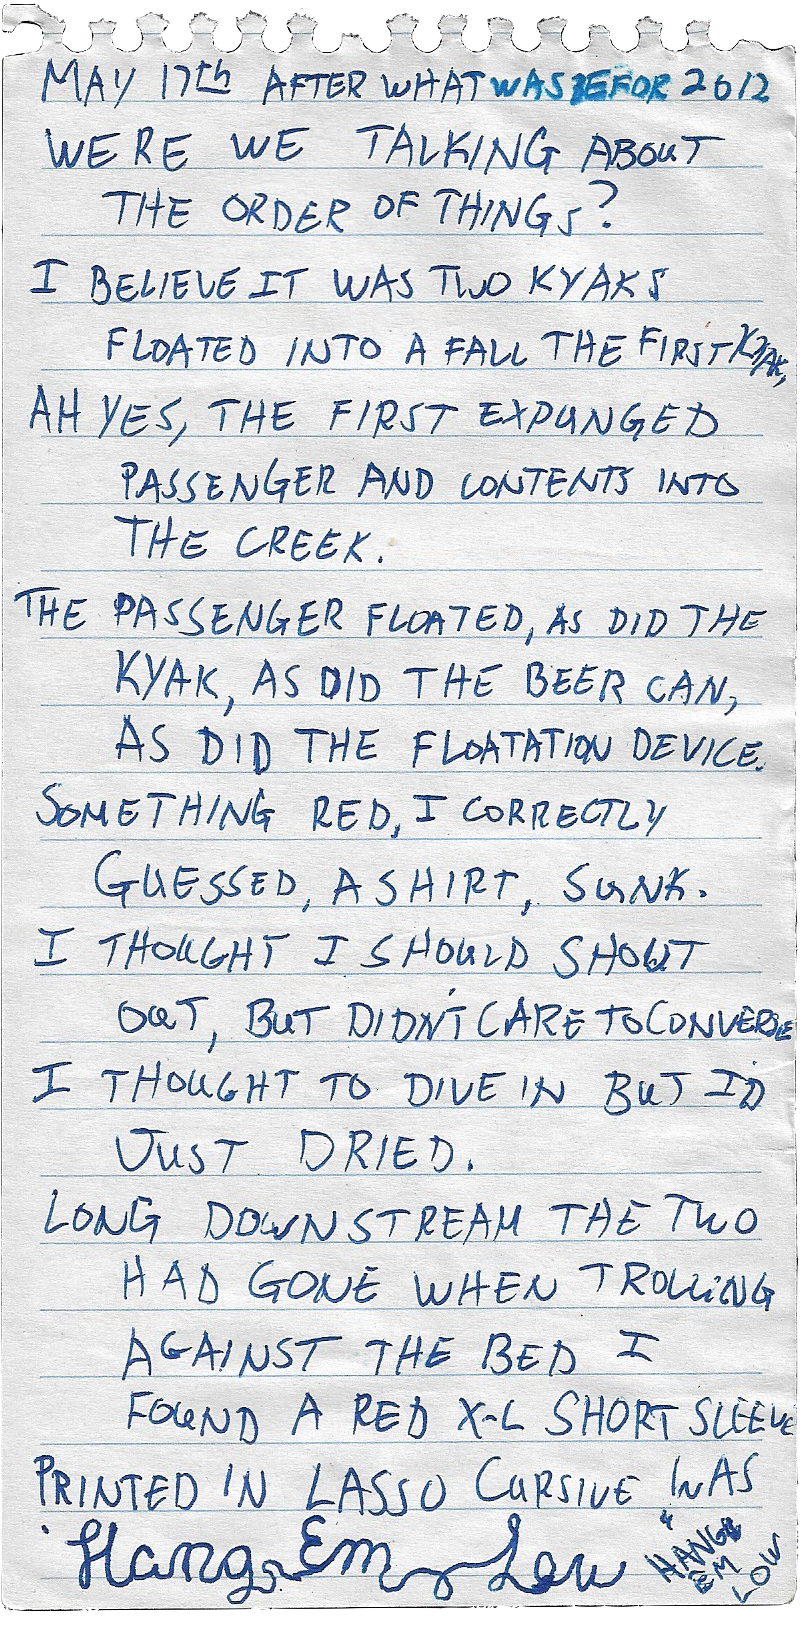 MAY 17th AFTER WHAT WAS BEFOR 2012
WERE WE TALKING ABOUT
THE ORDER OF THINGS?
I BELIEVE IT WAS TWO KYAKS
FLOATED INTO A FALL THE FIRST KYAK,
AH YES, THE FIRST EXPUNGED
PASSENGER AND CONTENTS INTO
THE CREEK.
THE PASSENGER FLOATED, AS DID THE
KYAK, AS DID THE BEER CAN,
AS DID THE FLOATATION DEVICE.
SOMETHING RED, I CORRECTLY
GUESSED, A SHIRT, SUNK.
I THOUGHT I SHOULD SHOUT
OUT, BUT DIDN'T CARE TO CONVERSE
I THOUGHT TO DIVE IN BUT I'D
JUST DRIED.
LONG DOWNSTREAM THE TWO
HAD GONE WHEN TROLLING
AGAINST THE BED I
FOUND A RED X-L SHORT SLEEVE
PRINTED IN LASSO CURSIVE WAS
"Hang Em Low"
HANG
EM
LOW